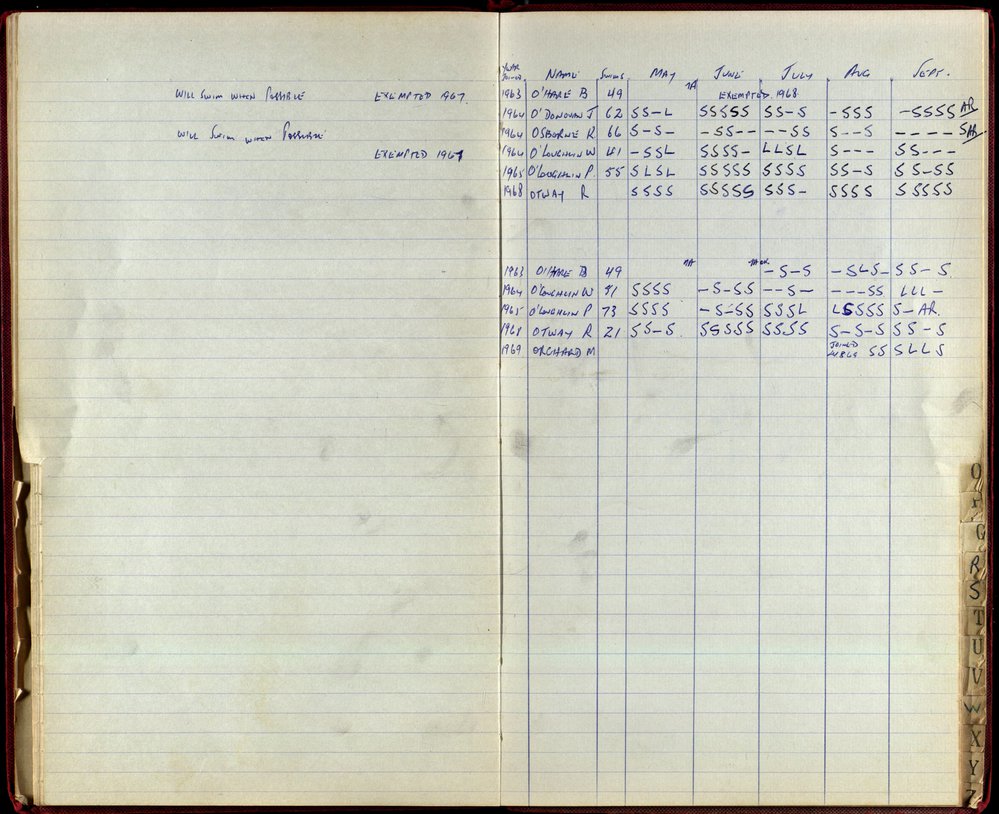 WILL SWIM WHEN POSSIBLE EXEMPTED 1967.
WILL SWIM WHEN POSSIBLE
EXEMPTED 1967
YEAR JOINED NAME SWIMS MAY JUNE JULY AUG SEPT.
1963 O'HARE B 49 NA EXEMPTED 1968
1964 O'DONOVAN J 62 SS-L SSSSS SS-S -SSS -SSSS AR
1964 OSBORNE R 66 S-S- -SS- --SS S--S ----S AR
1964 O'LOUGHLIN W 41 -SSL SSSS- LLSL S--- SS---
1965 O'LOUGHLIN P. 55 SLSL SSSSS SSSS SS-S SS-SS
1968 OTWAY R SSSS SSSSS SSS- SSSS SSSSS
1963 O'HARE B 49 NA -S-S -SLS- SS-S
1964 O'LOUGHLIN W 81 SSSS -S-SS --S- ---SS LLL-
1965 O'LOUGHLIN P 73 SSSS -S-SS SSSL LSSSS S-AR.
1968 OTWAY R 21 SS-S SSSSS SSSS S-S-S SS-S
1969 ORCHARD M JOINED SS SLLS
O
P
Q
R
S
T
U
V
W
X
Y
Z